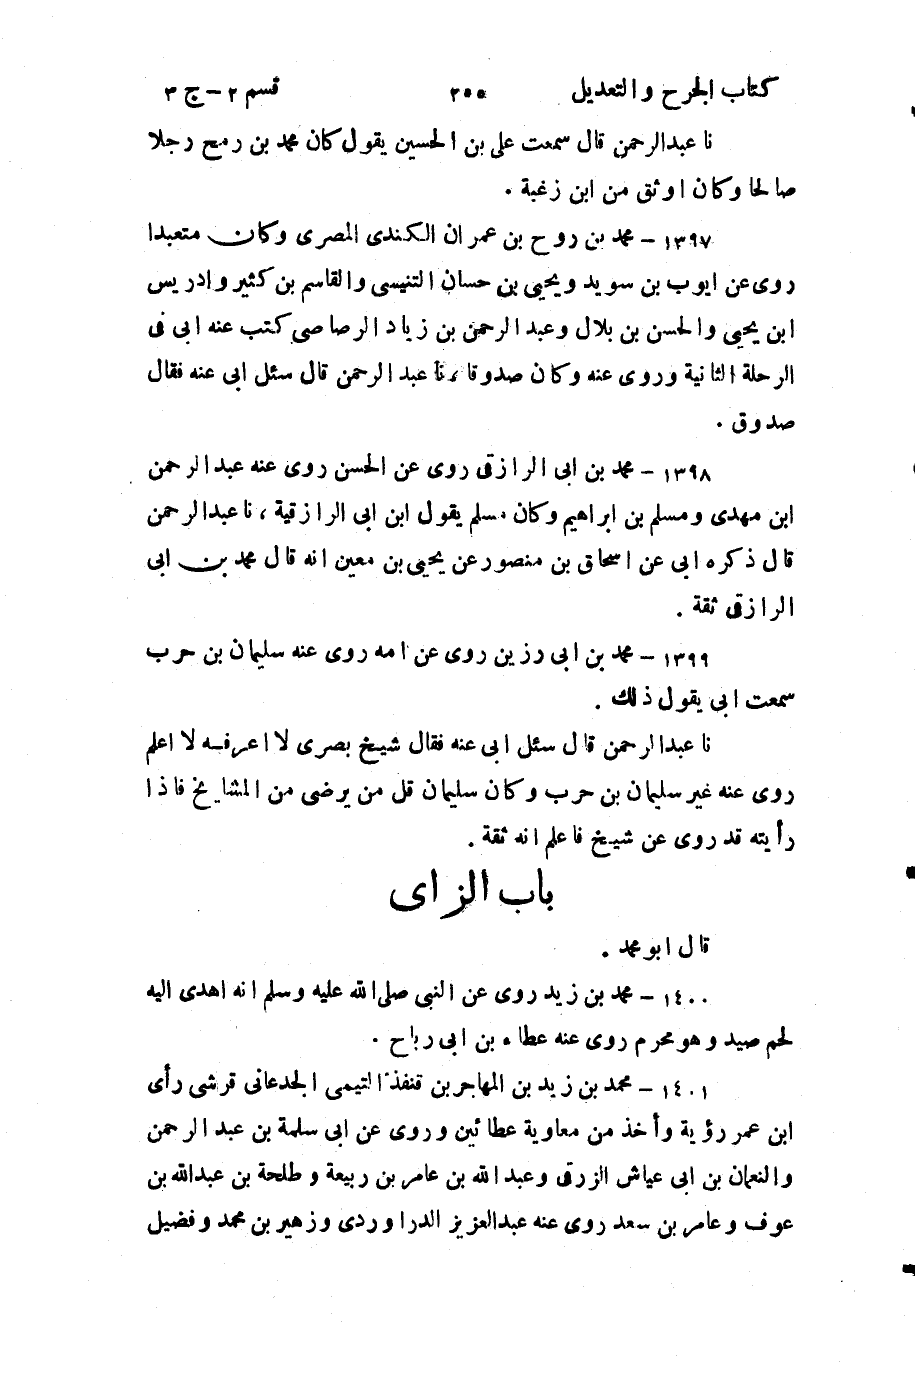 كتاب الجرح والتعديل ٢٥٥ قسم ٢ - ج ٣
نا عبدالرحمن قال سمعت على بن الحسين يقول كان محمد بن رمح رجلا
صالحا وكان اوثق من ابن زغبة .
١٣٩٧ - محمد بن روح بن عمران الكندى المصرى وكان متعبدا
روى عن ايوب بن سويد ويحيى بن حسان التنيسى والقاسم بن كثير وادريس
ابن يحيى والحسن بن بلال وعبدالرحمن بن زياد الرصاصى كتب عنه ابى فى
الرحلة الثانية وروى عنه وكان صدوقا ، نا عبدالرحمن قال سئل ابى عنه فقال
صدوق .
١٣٩٨ - محمد بن ابى الرازقى روى عن الحسن روى عنه عبدالرحمن
ابن مهدى ومسلم بن ابراهيم وكان مسلم يقول ابن ابى الرازقية ، نا عبدالرحمن
قال ذكره ابى عن اسحاق بن منصور عن يحيى بن معين انه قال محمد بن ابى
الرازقى ثقة .
١٣٩٩ - محمد بن ابى رزين روى عن امه روى عنه سليمان بن حرب
سمعت ابى يقول ذلك .
نا عبدالرحمن قال سئل ابى عنه فقال شيخ بصرى لا اعرفه لا اعلم
روى عنه غير سليمان بن حرب وكان سليمان قل من يرضى من المشايخ فاذا
رأيته قد روى عن شيخ فاعلم انه ثقة .
باب الزاى
قال ابو محمد .
١٤٠٠ - محمد بن زيد روى عن النبى صلى الله عليه وسلم انه اهدى اليه
لحم صيد وهو محرم روى عنه عطاء بن ابى رباح .
١٤٠١ - محمد بن زيد بن المهاجر بن قنفذ التيمى الجدعانى قرشى رأى
ابن عمر رؤية وأخذ من معاوية عطائين وروى عن ابى سلمة بن عبدالرحمن
والنعمان بن ابى عياش الزرقى وعبدالله بن عامر بن ربيعة وطلحة بن عبدالله بن
عوف وعامر بن سعد روى عنه عبدالعزيز الدراوردى وزهير بن محمد وفضيل